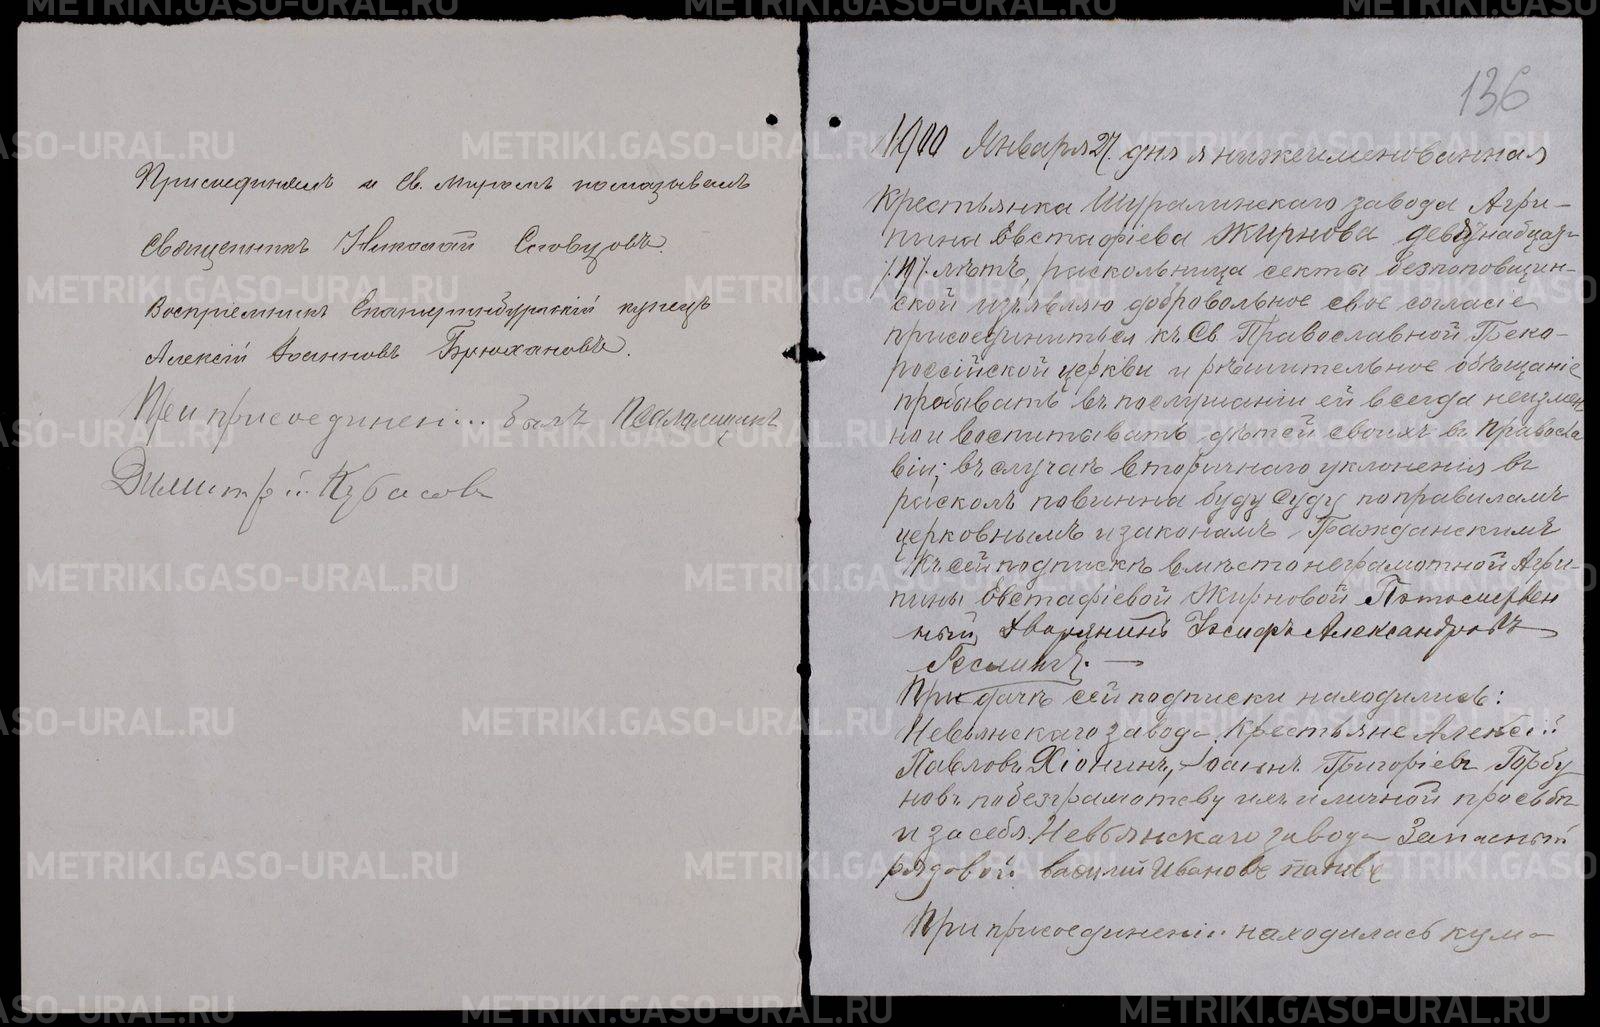 Присоединялъ и Св. Миромъ помазывалъ
Священникъ Николай Словцовъ.
Воспріемникъ Екатеринбургскій купецъ
Алексій Іоанновъ Брюхановъ.
При присоединеніи былъ Псаломщикъ
Димитрій Кубасовъ
136
1900 Января 27. дня я нижеименованная
Крестьянка Шуралинскаго завода Агри-
пина Евстафіева Жирнова девятнадцати
/19/ лѣтъ, раскольница секты безпоповщин-
ской изъявляю добровольное свое согласіе
присоединиться къ Св. Православной Греко-
россійской церкви и рѣшительное обѣщаніе
пробывать въ послушаніи ей всегда неизмен
но и воспитывать дѣтей своихъ въ Правосла
віи; въ случаѣ вторичнаго уклоненія въ
расколъ повинна буду суду по правиламъ
церковнымъ и законамъ Гражданскимъ
Къ сей подпискѣ вмѣсто неграмотной Агри-
пины Евстафіевой Жирновой Потомствен
ный Дворянинъ Іосифъ Александровъ
Геслингъ. —
При дачѣ сей подписки находились:
Невьянскаго завода крестьяне Алексій
Павловъ Хіонинъ, Іоаннъ Григорьевъ Горбу
новъ по безграмотству ихъ и личной просьбѣ
и за себя Невьянскаго завода Запасный
рядовой Василий Иванове Панове
При присоединеніи находилась кума
METRIKI.GASO-URAL.RU